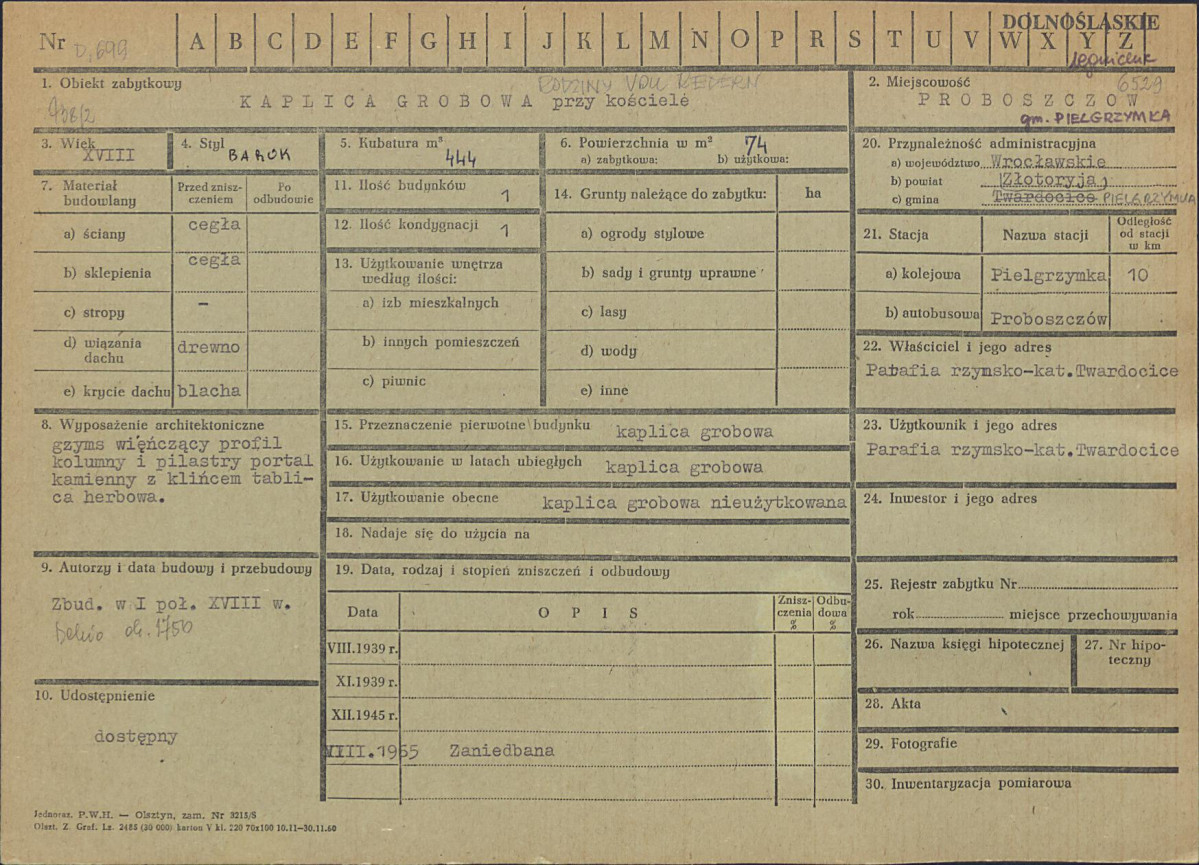 DOLNOŚLĄSKIE
Nr D.699 A B C D E F G H I J K L M N O P R S T U V W X Y Z
legnickie
1. Obiekt zabytkowy
RODZINY VON REDERN
KAPLICA GROBOWA przy kościele
2. Miejscowość 6529
PROBOSZCZÓW
gm. PIELGRZYMKA
3. Wiek
XVIII
4. Styl
BAROK
5. Kubatura m³
444
6. Powierzchnia w m² 74
a) zabytkowa: b) użytkowa:
7. Materiał budowlany
Przed znisz-
czeniem
Po
odbudowie
a) ściany cegła
b) sklepienia cegła
c) stropy –
d) wiązania
dachu drewno
e) krycie dachu blacha
11. Ilość budynków 1
12. Ilość kondygnacji 1
13. Użytkowanie wnętrza
według ilości:
a) izb mieszkalnych
b) innych pomieszczeń
c) piwnic
14. Grunty należące do zabytku: ha
a) ogrody stylowe
b) sady i grunty uprawne
c) lasy
d) wody
e) inne
20. Przynależność administracyjna
a) województwo Wrocławskie
b) powiat Złotoryja
c) gmina Twardocice PIELGRZYMKA
21. Stacja
Nazwa stacji
Odległość
od stacji
w km
a) kolejowa Pielgrzymka 10
b) autobusowa Proboszczów
22. Właściciel i jego adres
Parafia rzymsko-kat.Twardocice
8. Wyposażenie architektoniczne
gzyms więńczący profil
kolumny i pilastry portal
kamienny z klińcem tabli-
ca herbowa.
15. Przeznaczenie pierwotne budynku kaplica grobowa
16. Użytkowanie w latach ubiegłych kaplica grobowa
17. Użytkowanie obecne kaplica grobowa nieużytkowana
18. Nadaje się do użycia na
23. Użytkownik i jego adres
Parafia rzymsko-kat.Twardocice
24. Inwestor i jego adres
9. Autorzy i data budowy i przebudowy
Zbud. w I poł. XVIII w.
ok. 1750
10. Udostępnienie
dostępny
19. Data, rodzaj i stopień zniszczeń i odbudowy
Data
OPIS
Znisz-
czenia
%
Odbu-
dowa
%
VIII.1939 r.
XI.1939 r.
XII.1945 r.
VIII.1965 Zaniedbana
25. Rejestr zabytku Nr
rok miejsce przechowywania
26. Nazwa księgi hipotecznej
27. Nr hipo-
teczny
28. Akta
29. Fotografie
30. Inwentaryzacja pomiarowa
Jednoraz. P.W.H. — Olsztyn, zam. Nr 3215/S
Olszt. Z. Graf. Lz. 2485 (30 000) karton V kl. 220 70x100 10.11—30.11.60